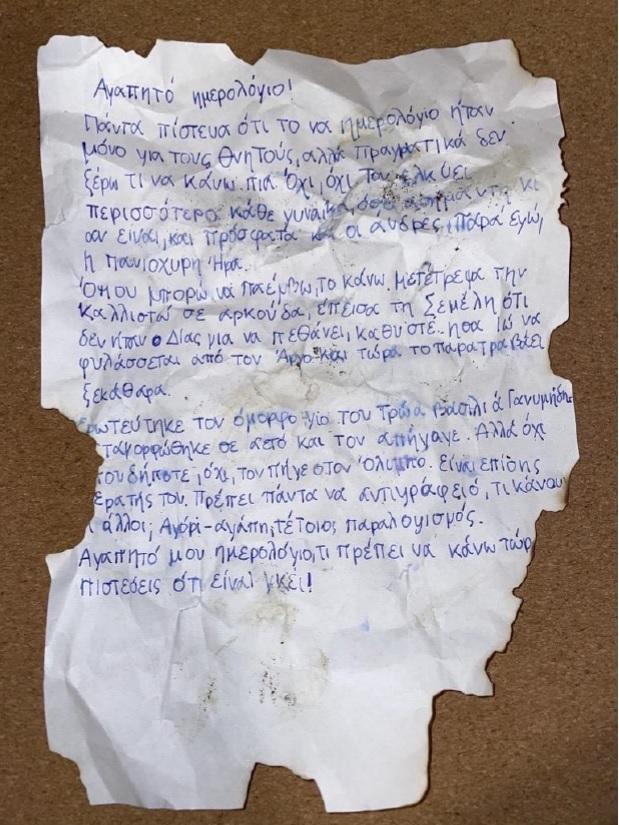 Αγαπητό ημερολόγιο!
Πάντα πίστευα ότι το να ημερολόγιο ήταν
μόνο για τους θνητούς, αλλά πραγματικά δεν
ξέρω τι να κάνω πια. Όχι, όχι Τον ελκύει
περισσότερο κάθε γυναίκα, όσο ασήμαντη κι
αν είναι, και πρόσφατα και οι άνδρες, πάρα εγώ,
η πανισχυρη Ήρα.
Όπου μπορώ, να το κάνω. μετέτρεψα την
Καλλιστώ σε αρκούδα, έπεισα τη Σεμέλη ότι
δεν ήταν ο Δίας για να πεθάνει, Ιώ να
φυλάσσεται από τον Άργο και τώρα το παρατραβάει
ξεκάθαρα.
ερωτεύτηκε τον όμορφο γιο του Τρώα βασιλιά Γανυμήδη
ταμορφώθηκε σε αετό και τον απήγαγε. Αλλά όχι
πουδήποτε, όχι, τον πήγε στον Όλυμπο. Είναι επίσης
εραστής του. Πρέπει πάντα να αντιγράφει ό, τι κάνου
ι άλλοι; Αγόρι-αγάπη, τέτοιος παραλογισμός.
Αγαπητό μου ημερολόγιο, τι πρέπει να κάνω τώρ
πιστεύεις ότι είναι γκέι!